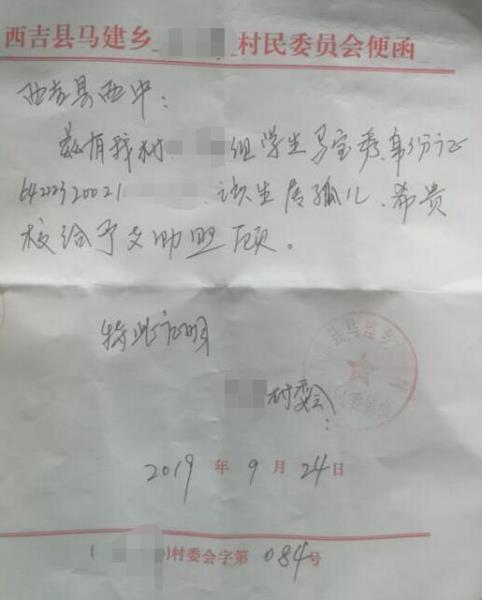 西吉县马建乡 村民委员会便函
西吉县西中：
兹有我村 组学生马宝秀，身份证
64222320021 ，该生居孤儿、希贵
校给予支助照顾。
特此证明
村委会
2019年9月24日
( )村委会字第084号